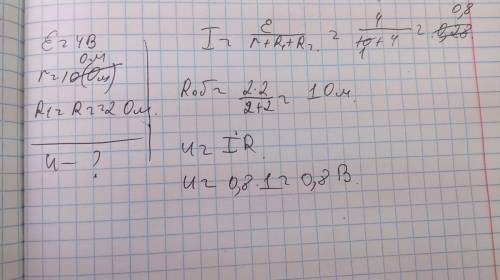 ε = 4В
Ом
r = 10 (Ом)
R1 = R2 = 2 Ом.
U — ?
I = ε / (r + R1 + R2) = 4 / (1 + 4) = 0,8
Rоб = 2·2 / (2+2) = 1 Ом.
U = IR
U = 0,8·1 = 0,8 В.